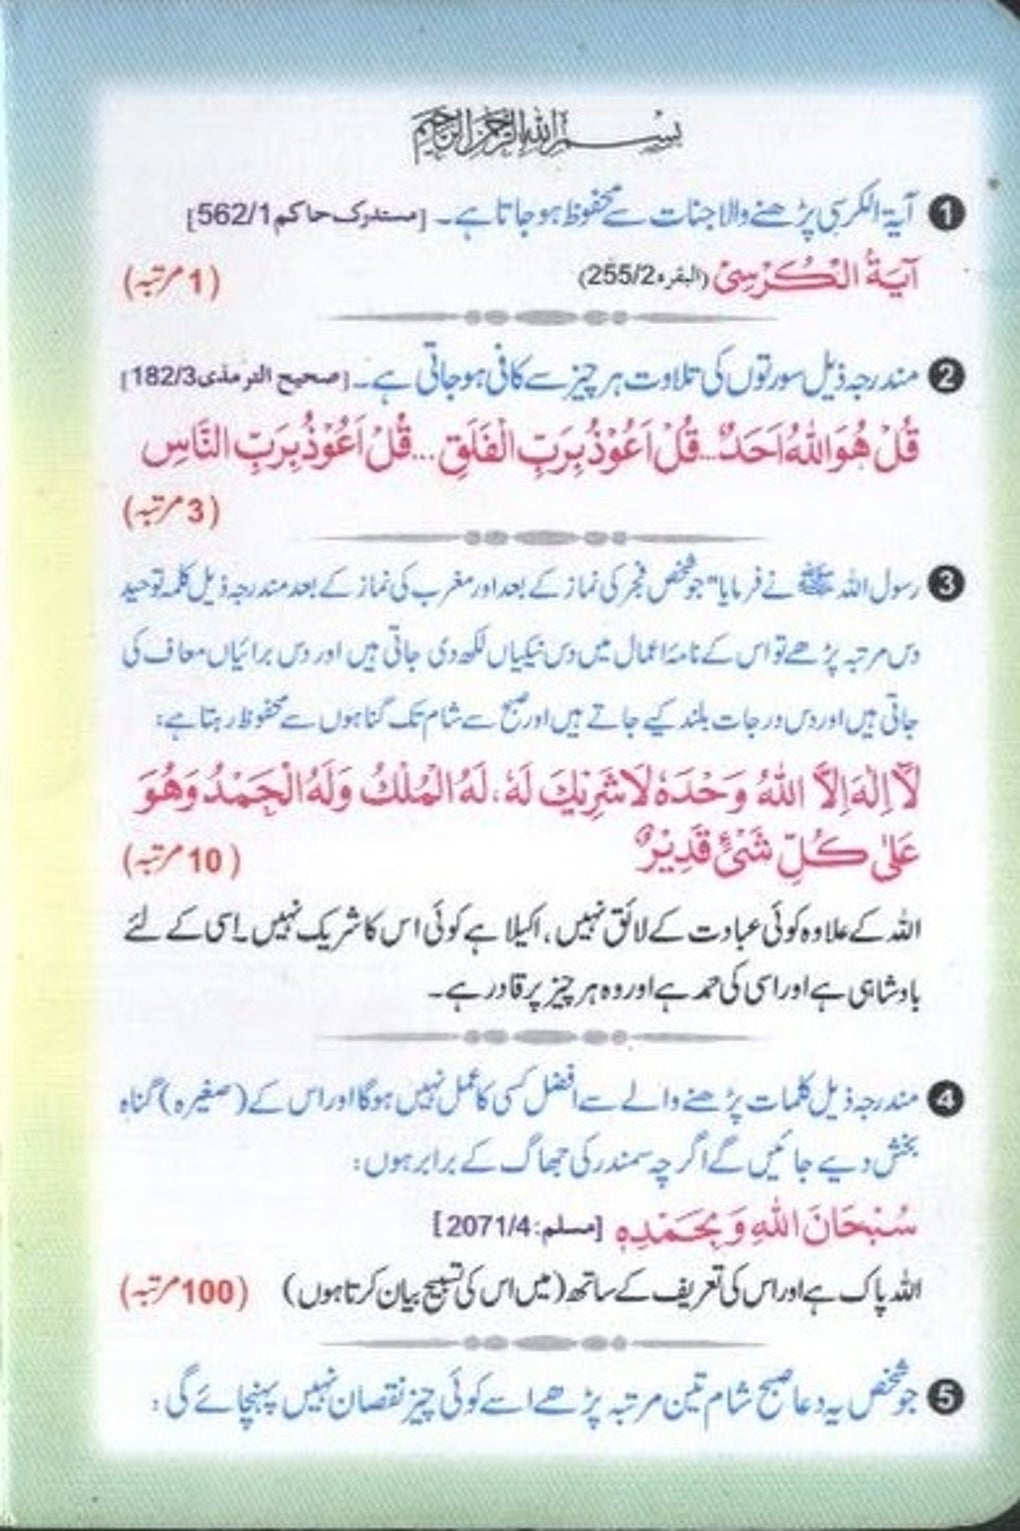 بسم الله الرحمن الرحيم
❶ آیۃ الکرسی پڑھنے والا جنات سے محفوظ ہو جاتا ہے۔ [مستدرک حاکم 562/1]
آيَةُ الْكُرْسِيْ (البقرہ 255/2) (1 مرتبہ)
❷ مندرجہ ذیل سورتوں کی تلاوت ہر چیز سے کافی ہو جاتی ہے۔ [صحیح الترمذی 182/3]
قُلْ هُوَ اللهُ اَحَدٌ... قُلْ اَعُوْذُ بِرَبِّ الْفَلَقِ... قُلْ اَعُوْذُ بِرَبِّ النَّاسِ
(3 مرتبہ)
❸ رسول اللہ ﷺ نے فرمایا "جو شخص فجر کی نماز کے بعد اور مغرب کی نماز کے بعد مندرجہ ذیل کلمہ توحید
دس مرتبہ پڑھے تو اس کے نامۂ اعمال میں دس نیکیاں لکھ دی جاتی ہیں اور دس برائیاں معاف کی
جاتی ہیں اور دس درجات بلند کیے جاتے ہیں اور صبح سے شام تک گناہوں سے محفوظ رہتا ہے:
لَآ اِلٰهَ اِلَّا اللهُ وَحْدَهٗ لَا شَرِيْكَ لَهٗ، لَهُ الْمُلْكُ وَلَهُ الْحَمْدُ وَهُوَ
عَلٰى كُلِّ شَيْءٍ قَدِيْرٌ (10 مرتبہ)
اللہ کے علاوہ کوئی عبادت کے لائق نہیں، اکیلا ہے کوئی اس کا شریک نہیں۔ اسی کے لئے
بادشاہی ہے اور اسی کی حمد ہے اور وہ ہر چیز پر قادر ہے۔
❹ مندرجہ ذیل کلمات پڑھنے والے سے افضل کسی کا عمل نہیں ہوگا اور اس کے (صغیرہ) گناہ
بخش دیے جائیں گے اگرچہ سمندر کی جھاگ کے برابر ہوں:
سُبْحَانَ اللهِ وَ بِحَمْدِهٖ [مسلم: 2071/4]
اللہ پاک ہے اور اس کی تعریف کے ساتھ (میں اس کی تسبیح بیان کرتا ہوں) (100 مرتبہ)
❺ جو شخص یہ دعا صبح شام تین مرتبہ پڑھے اسے کوئی چیز نقصان نہیں پہنچائے گی: